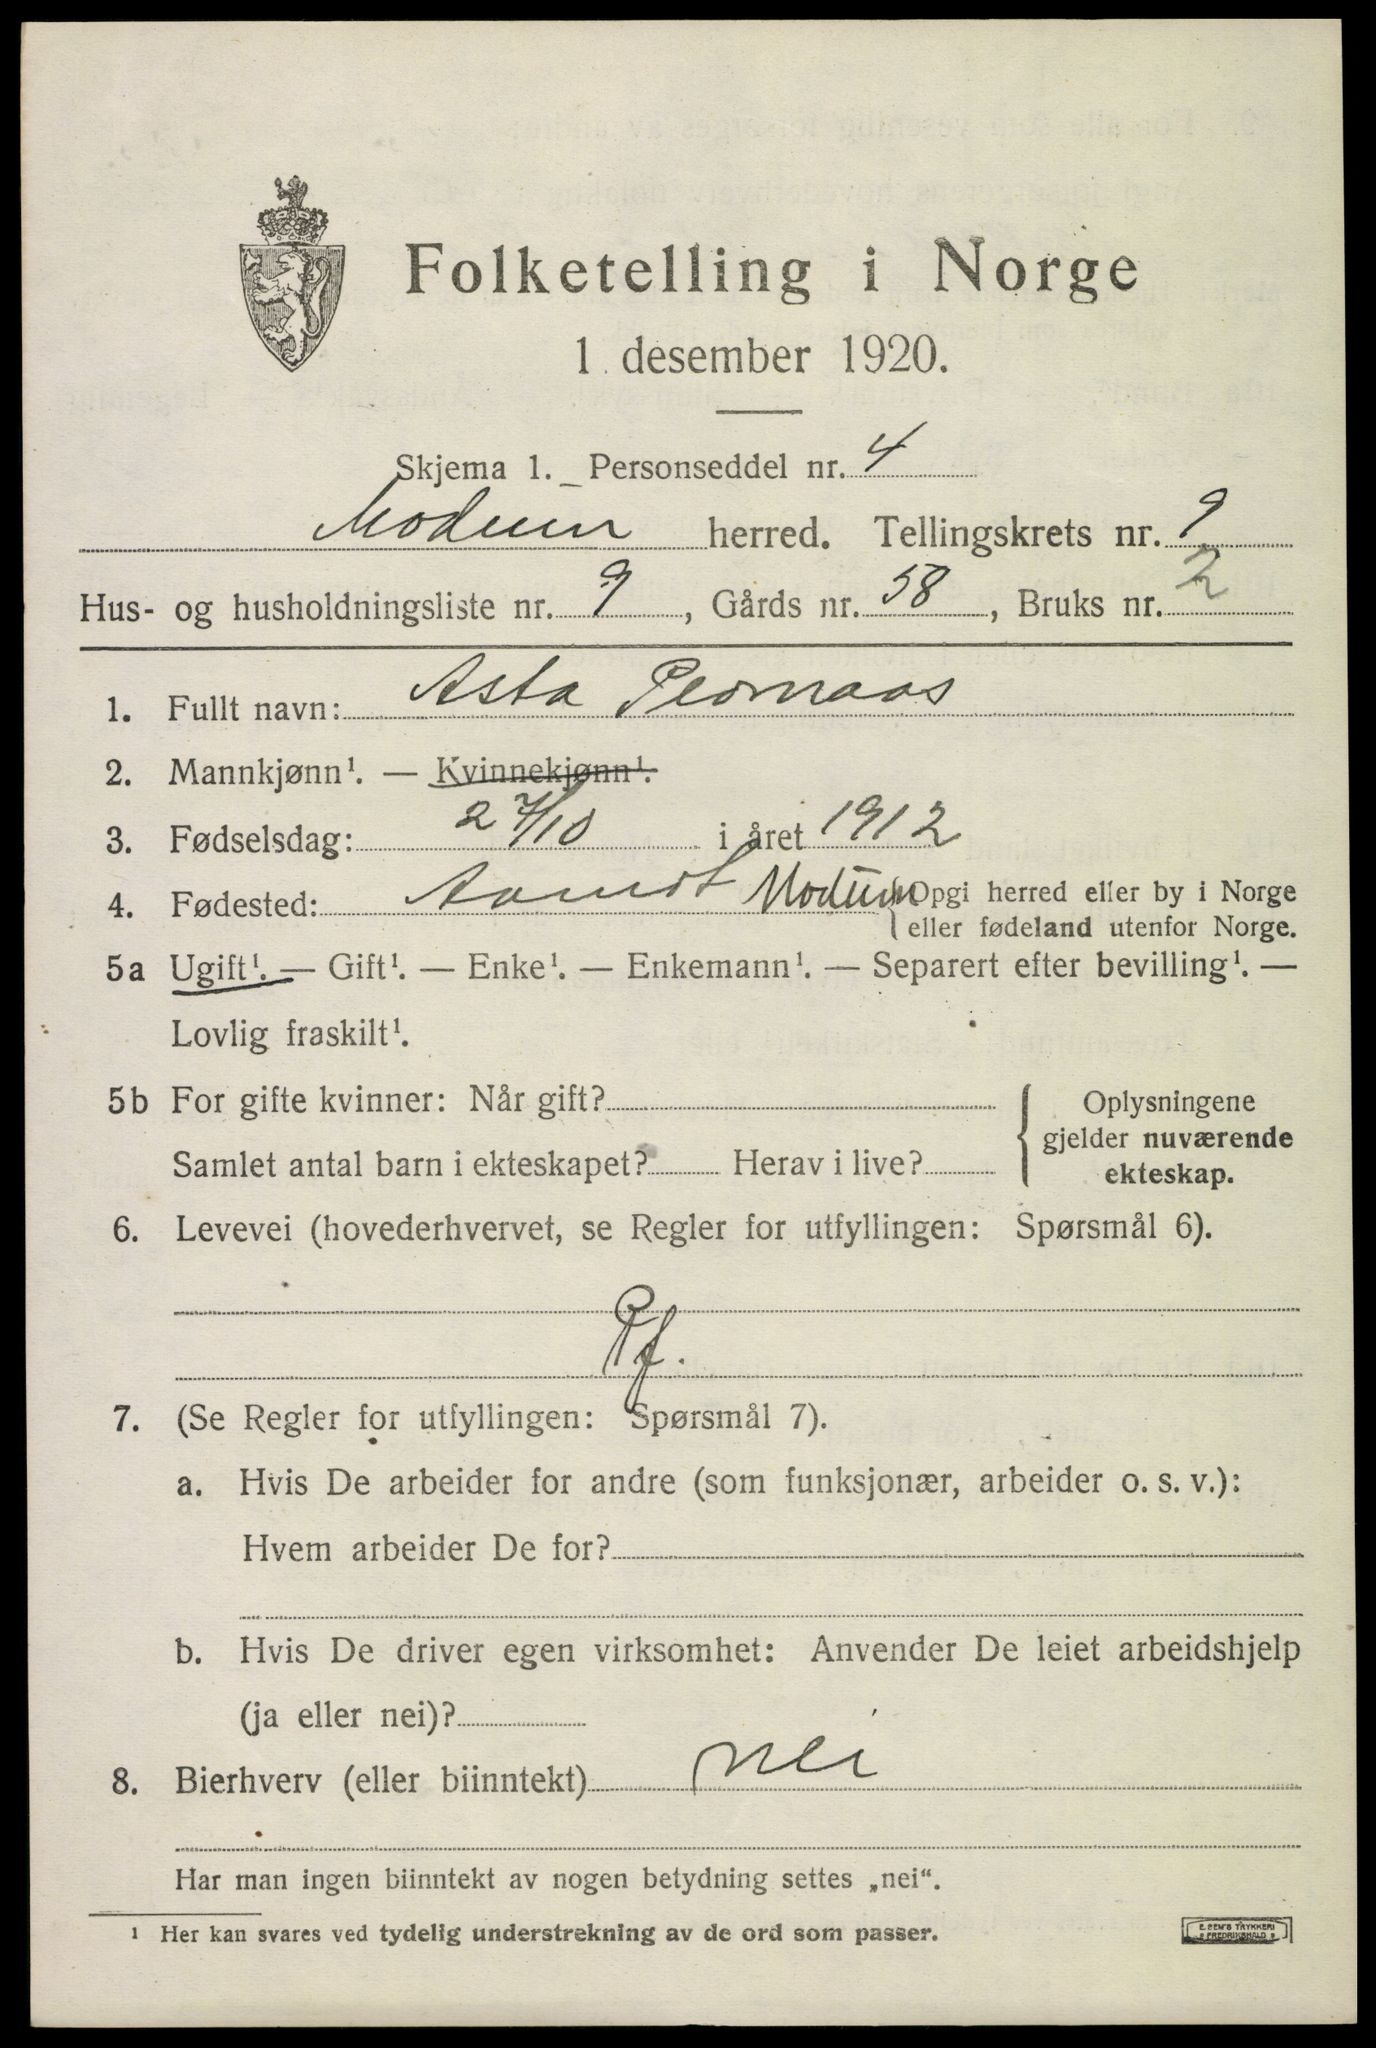 Folketelling i Norge
1 desember 1920.
Skjema 1. Personseddel nr. 4
Modum herred. Tellingskrets nr. 9
Hus- og husholdningsliste nr. 9, Gårds nr. 58, Bruks nr. 2
1. Fullt navn: Asta
2. Mannkjønn¹. — Kvinnekjønn¹.
3. Fødselsdag: 27/10 i året 1912
4. Fødested: Aamot Modum {Opgi herred eller by i Norge
eller fødeland utenfor Norge.
5a Ugift¹. — Gift¹. — Enke¹. — Enkemann¹. — Separert efter bevilling¹. —
Lovlig fraskilt¹.
5b For gifte kvinner: Når gift?
Samlet antal barn i ekteskapet? Herav i live?
{ Oplysningene
gjelder nuværende
ekteskap.
6. Levevei (hovederhvervet, se Regler for utfyllingen: Spørsmål 6).
Pf.
7. (Se Regler for utfyllingen: Spørsmål 7).
a. Hvis De arbeider for andre (som funksjonær, arbeider o. s. v.):
Hvem arbeider De for?
b. Hvis De driver egen virksomhet: Anvender De leiet arbeidshjelp
(ja eller nei)?
8. Bierhverv (eller biinntekt) nei
Har man ingen biinntekt av nogen betydning settes „nei“.
¹ Her kan svares ved tydelig understrekning av de ord som passer.
E. SEM'S TRYKKERI
FREDRIKSHALD